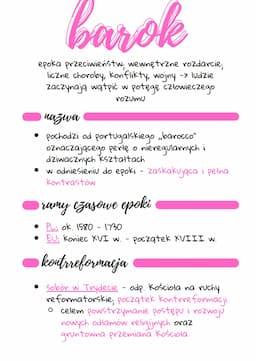 barok
epoka przeciwieństw, wewnętrzne rozdarcie,
liczne choroby, konflikty, wojny -> ludzie
zaczynają wątpić w potęgę człowieczego
rozumu
nazwa
• pochodzi od portugalskiego „barocco"
oznaczającego perłę o nieregularnych i
dziwacznych kształtach
• w odniesieniu do epoki - zaskakująca i pełna
kontrastów
ramy czasowe epoki
• PL: ok. 1580 - 1730
• EU: koniec XVI w. - początek XVIII w.
kontrreformacja
• sobór w Trydecie - odp. Kościoła na ruchy
reformatorskie, początek kontrreformacji
○ celem powstrzymanie postępu i rozwoju
nowych odłamów religijnych oraz
gruntowna przemiana Kościoła